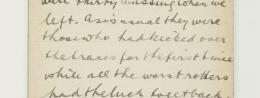 were thirty missing when we
left. As is usual they were
those who had kicked over
the traces for the first time
while all the worst rotters
had the luck to get back